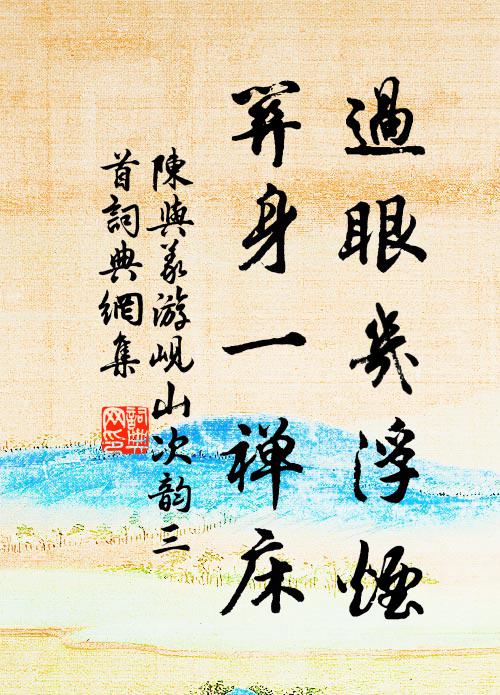 過眼幾浮煙
筭身一禅床
陳與義游峴山次韵三
首詞典網集